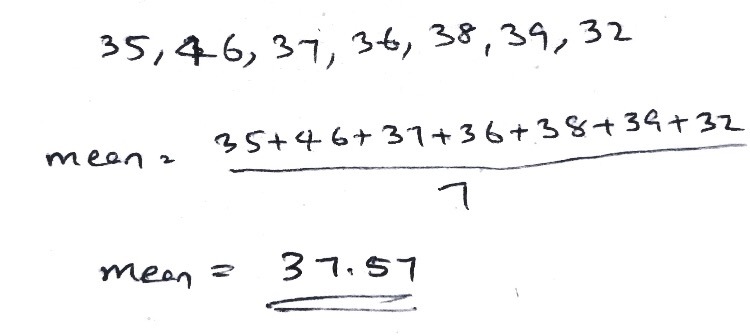 35, 46, 37, 36, 38, 39, 32
mean = 35+46+37+36+38+39+32
7
mean = 37.57